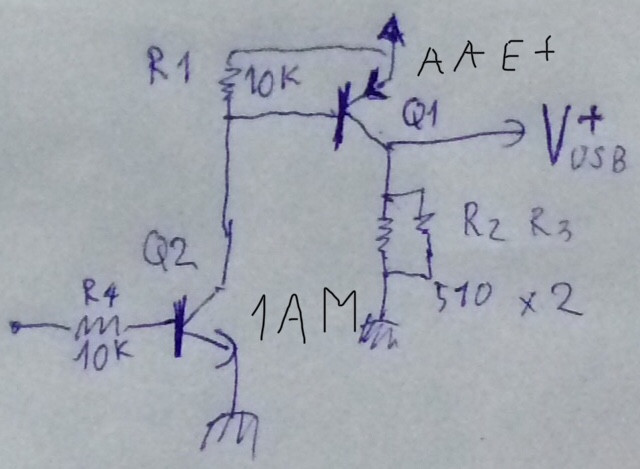 R1
10K
AAE+
Q1
V+
USB
R2 R3
510 x 2
Q2
R4
10K
1AM